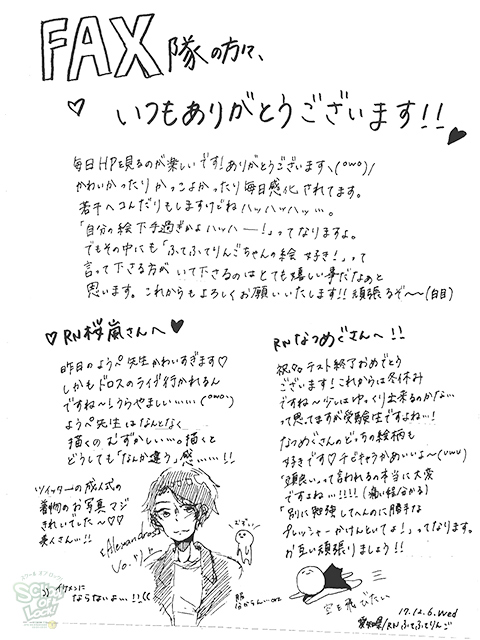 FAX隊の方々、
いつもありがとうございます!!
毎日HPを見るのが楽しいです!ありがとうございます\(°ω°)/
かわいかったりかっこよかったり毎日感化されてます。
若干ヘコんだりもしますけどねハッハッハッ…。
「自分の絵下手過ぎかよハッハー!」ってなりますよ。
でもその中にも「ふてふてりんごちゃんの絵好き!」って
言って下さる方がいて下さるのはとても嬉しい事だなぁと
思います。これからもよろしくお願いいたします!!頑張るぞ〜〜(白目)
♡RN桜嵐さんへ♥
昨日のようぺ先生かわいすぎます♡
しかもドロスのライブ行かれるん
ですね〜!うらやましい……(°ω°)
ようぺ先生はなんとなく
描くのむずかしい…。描くと
どうしても「なんか違う」感……!!
ツイッターの成人式の
着物のお写真マジ
きれいでした〜♡♡
美人さん…!!
[Alexandros]
Vo.
むずい
イケメンに
ならないよ…!!
服
分からんいorz
RNなつめぐさんへ!!
祝 テスト終了おめでとう
ございます!これからは冬休み
ですね〜少しはゆっくり出来るのかな…
って思ってますが受験生ですよね…!
なつめぐさんのどっちの絵柄も
好きです♡チビキャラかわいいよ〜(uωu)
「頭良い」って言われるの本当に大変
ですよね…!!!!(痛い程分かる)
「別に勉強してへんのに勝手な
プレッシャーかけんといてよ!」ってなります。
お互い頑張りましょう!!
空を飛びたい
17.12.6.Wed
愛知県/RNふてふてりんご